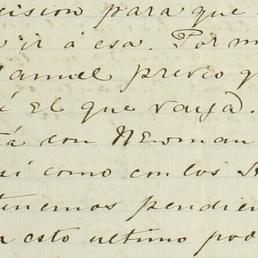 cision para que
ir á esa. Por m
anuel previo q
é el que vaya.
tá con Newman
sí como con los
tenemos pendien
a esto ultimo pod